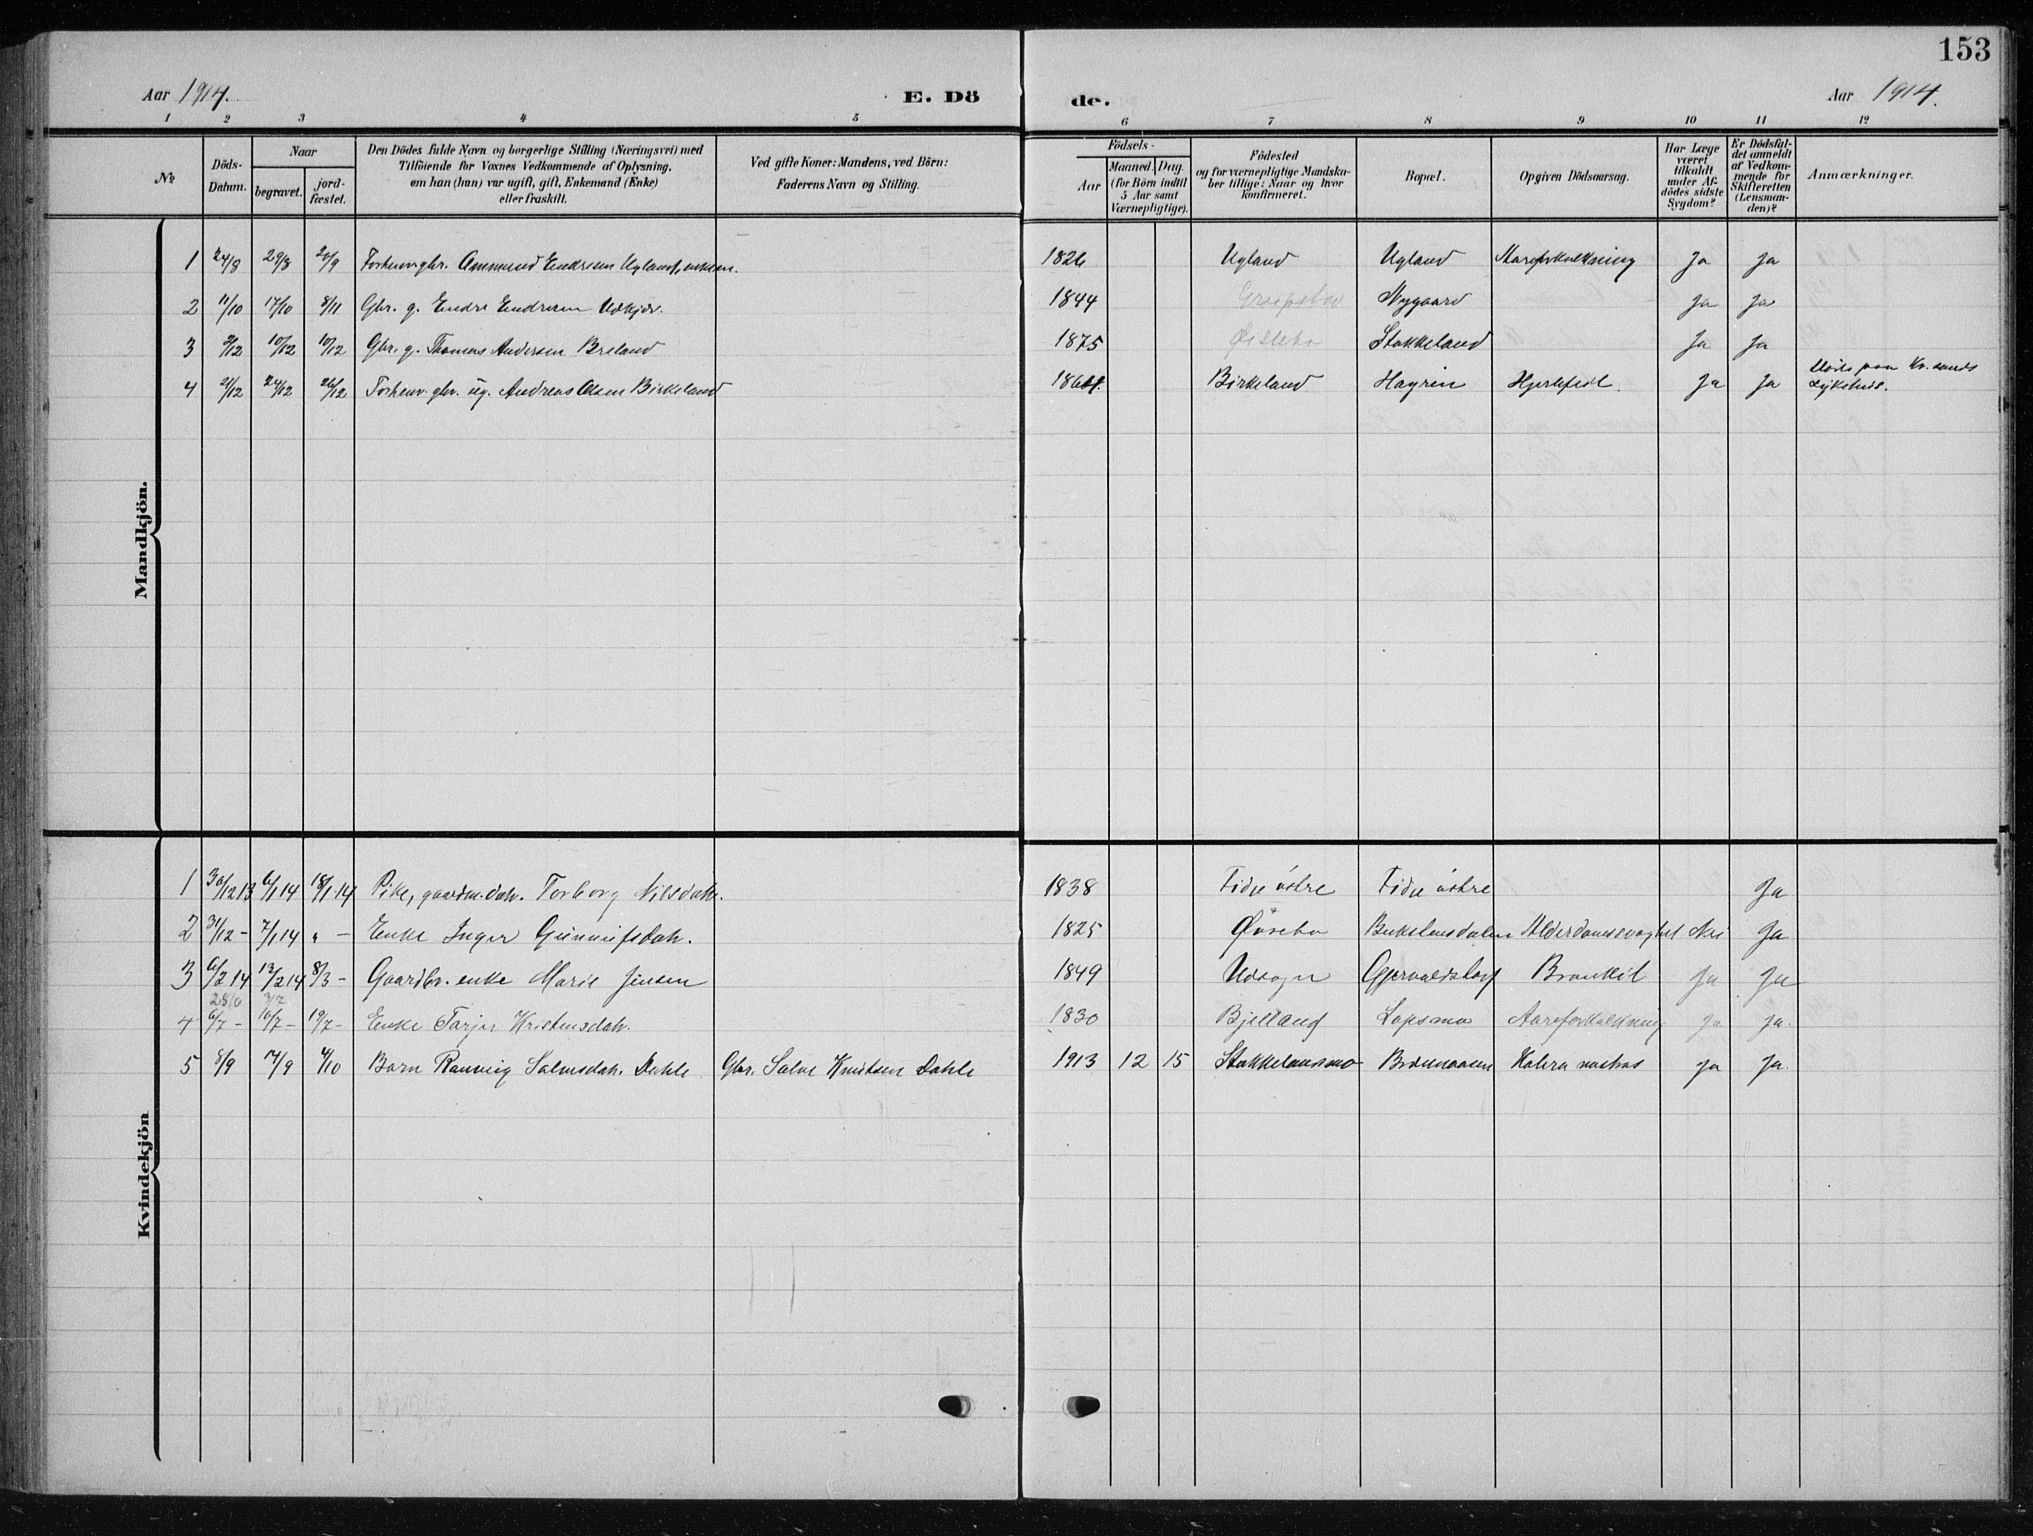 153
Aar 1914. E. Dö de. Aar 1914.
1 2 3 4 5 6 7 8 9 10 11 12
No
Döds-
Datum.
Naar
begravet.
jord-
fæstet.
Den Dödes fulde Navn og borgerlige Stilling (Næringsvei) med
Tilföiende for Voxnes Vedkommende af Oplysning,
om han (hun) var ugift, gift, Enkemand (Enke)
eller fraskilt.
Ved gifte Koner: Mandens, ved Börn:
Faderens Navn og Stilling.
Födsels-
Aar
Maaned. Dag.
(for Börn indtil
5 Aar samt
Værnepligtige).
Födested
og for værnepligtige Mandska-
ber tillige: Naar og hvor
konfirmeret.
Bopæl.
Opgiven Dödsaarsag.
Har Læge
været
tilkaldt
under Af-
dödes sidste
Sygdom?
Er Dödsfal-
det anmeldt
af Vedkom-
mende for
Skifteretten
(Lensman-
den)?
Anmærkninger.
Mandkjön.
1 24/8 29/8 20/9 Forhenv. gbr. Ammund Endresen Ugland, enkem. 1826 Ugland Ugland Aareforkalkning Ja Ja
2 11/10 17/10 8/11 Gbr. g. Endre Endresen Udkjær. 1844 Greipstad Nygaard Ja Ja
3 3/12 10/12 10/12 Gbr. g. Thomas Andersen Breland 1875 Øislebø Stokkeland Ja Ja
4 21/12 24/12 26/12 Forhenv. gbr. ug. Andreas Olsen Birkeland 1864. Birkeland Høyrin Hjertefeil. Ja Ja Døde paa Kr.sands
sykehus.
Kvindekjön
1 30/12 13 6/1 14 18/1 14 Pike, gaardm.dat. Torborg Nilsdat. 1838 Fidje østre Fidje østre Ja
2 31/12 - 7/1 14 " - Enke Inger Gunnufsdat. 1825 Øvrebø Alderdomssvaghet Nei Ja
3 6/2 14 13/2 14 8/3 - Gaardbr. enke Marie Jensen 1849 Udsogn Bronkit Ja Ja
4 6/7 - 10/7 - 19/7 - Enke Tarjer Kristensdat. 1830 Bjelland Lopsmo Aareforkalkning Ja Ja.
5 8/9 14/9 4/10 Barn Rannveig Salvesdat. Dahle Gbr. Salve Knutsen Dahle 1913 12 15 Stokkelandsmo Brønnaasen Kolera nostras Ja Ja.